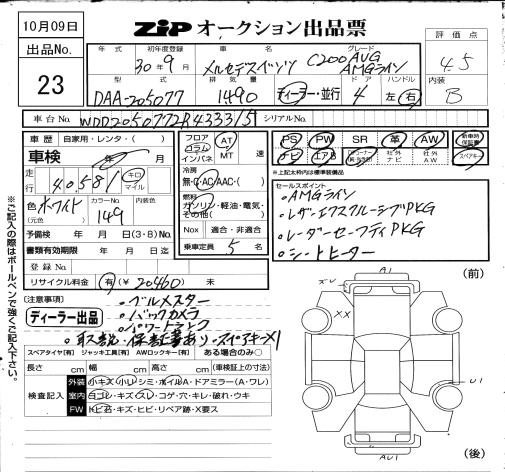 10月09日
ZiP オークション出品票
出品No.
23
年式 初年度登録 車名 グレード
30年9月 メルセデスベンツ C200 AUG AMGライン
型式 排気量 ドア ハンドル
DAA-205077 1490 ディーラー・並行 4 左 右
評価点
4.5
内装
B
車台No. WDD2050772R433315 シリアルNo.
車歴 自家用・レンタ・( )
車検 年 月
走行 40,581 キロ マイル
色 ホワイト (元色)
カラーNo. 149
内装色
予備検 年 月 日(3・8)No.
書類有効期限 年 月 日迄
登録No.
リサイクル料金 有(¥ 20460) 未
フロア コラム インパネ
AT MT 速
冷房
無・C・AC・AAC・( )
燃料
ガソリン・軽油・電気・その他( )
Nox 適合・非適合
乗車定員 5 名
PS PW SR 革 AW 新車時保証書
ナビ エアB 社外ナビ 社外AW スペアキー
*上記太枠内は標準装備品
セールスポイント
・AMGライン
・レザーエクスクルーシブPKG
・レーダーセーフティPKG
・シートヒーター
(注意事項)
ディーラー出品
・ベルメスター
・バックカメラ
・パワートランク
・取説・保証書あり・スペアキー×1
スペアタイヤ[有] ジャッキ工具[有] AWロックキー[有] ある場合のみ○
長さ cm 幅 cm 高さ cm (車検証上の寸法)
検査記入
外装 小キズ・小凹・シミ・ホイルA・ドアミラー(A・ワレ)
室内 ヨゴレ・キズ・スレ・コゲ・穴・キレ・破れ・ウキ
FW トビ石・キズ・ヒビ・リペア跡・X要ス
※ご記入の際はボールペンで強くご記入下さい。
(前)
A1
XX
U1
AU1
(後)